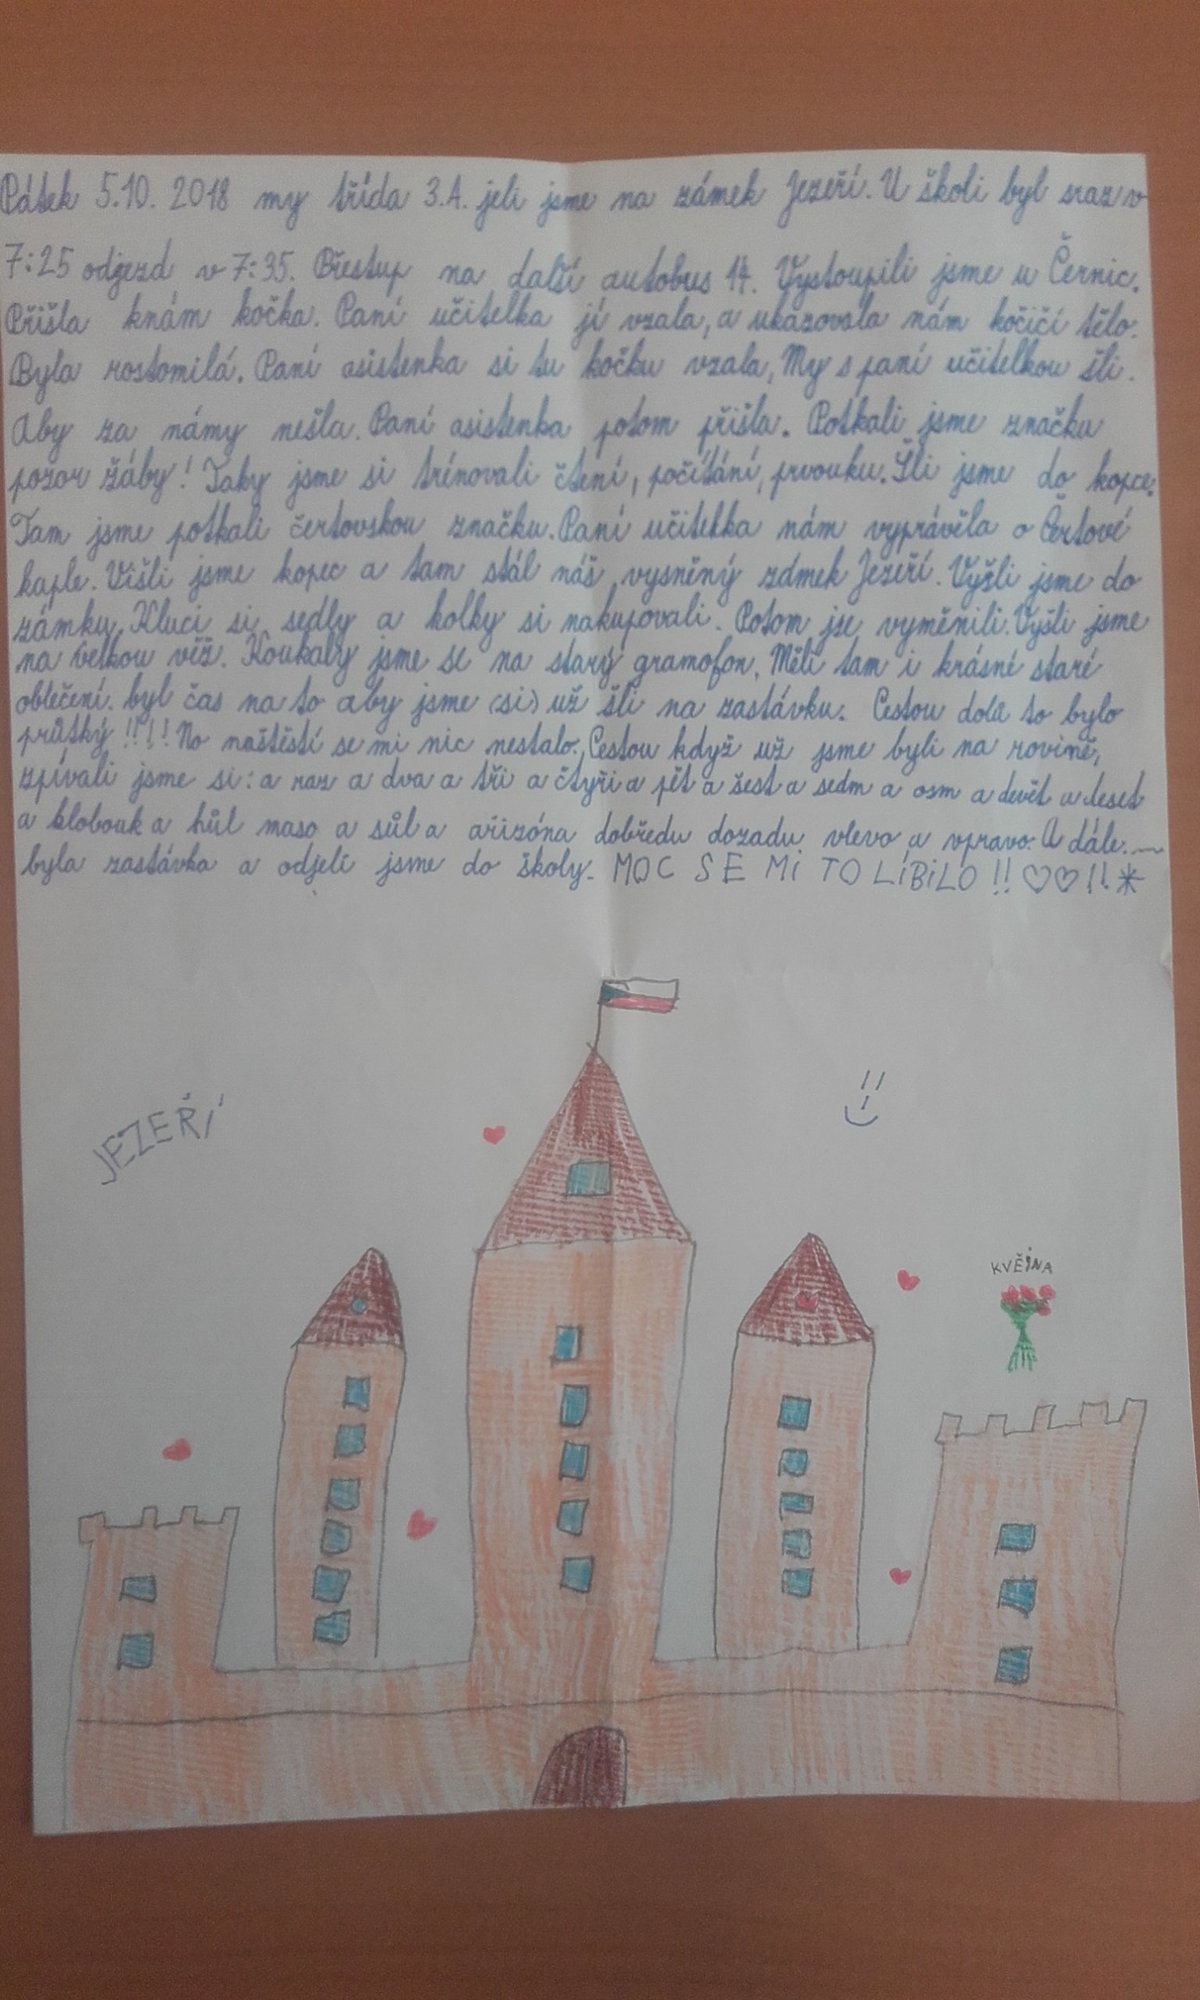 Pátek 5.10. 2018 my třída 3.A. jeli jsme na zámek Jezeří. U školi byl sraz v
7:25 odjezd v 7:35. Přestup na další autobus 14. Vystoupili jsme u Černic.
Přišla knám kočka. Paní učitelka jí vzala, a ukazovala nám kočičí tělo.
Byla rostomilá. Paní asistenka si tu kočku vzala, My s paní učitelkou šli.
Aby za námy nešla. Paní asistenka potom přišla. Potkali jsme značku
pozor žáby! Taky jsme si trénovali čtení, počítání, prvouku. Šli jsme do kopce.
Tam jsme potkali čertovskou značku. Paní učitelka nám vyprávěla o Čertové
kaple. Višli jsme kopec a tam stál náš vysněný zámek Jezeří. Vyšli jsme do
zámku. Kluci si sedly a holky si nakupovali. Potom jse vyměnili. Vyšli jsme
na velkou věž. Koukaly jsme se na starý gramofon. Měli tam i krásné staré
oblečení. byl čas na to aby jsme (si) už šli na zastávku. Cestou dolů to bylo
průtký !!!! No naštěstí se mi nic nestalo. Cestou když už jsme byli na rovině,
zpívali jsme si: a raz a dva a tři a čtyři a pět a šest a sedm a osm a devět a deset
a klobouk a hůl maso a sůl a arizóna dobředu dozadu vlevo a vpravo. A dále...
byla zastávka a odjeli jsme do školy. MOC SE Mi TO LíBiLO !! ♡♡!! *
JEZEŘÍ
KVĚTNA